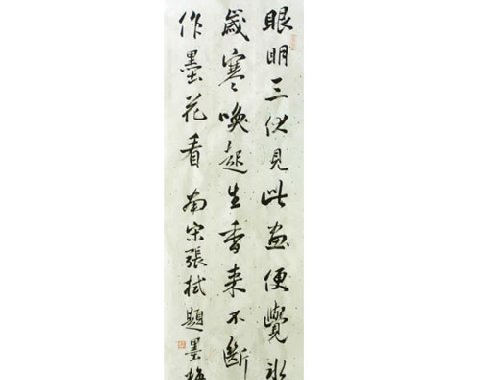 眼明三伏見此畫便覺氷
歲寒喚起生香来不斷
作墨花看 南宋張栻題墨梅